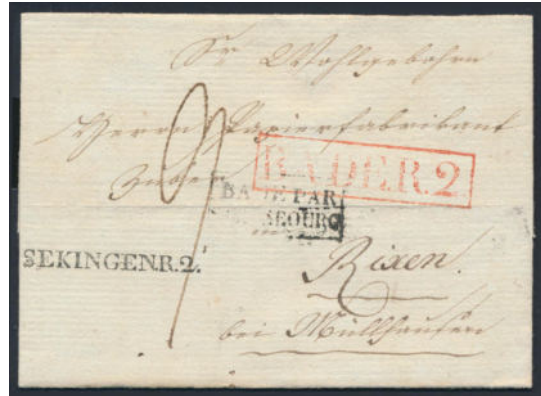 Sr Wohlgebohrn
Herrn Papierfabrikant
Zuber
BADE R.2.
BADE PAR
SEKINGEN.R.2.
in
Rixen.
bei Müllhausen